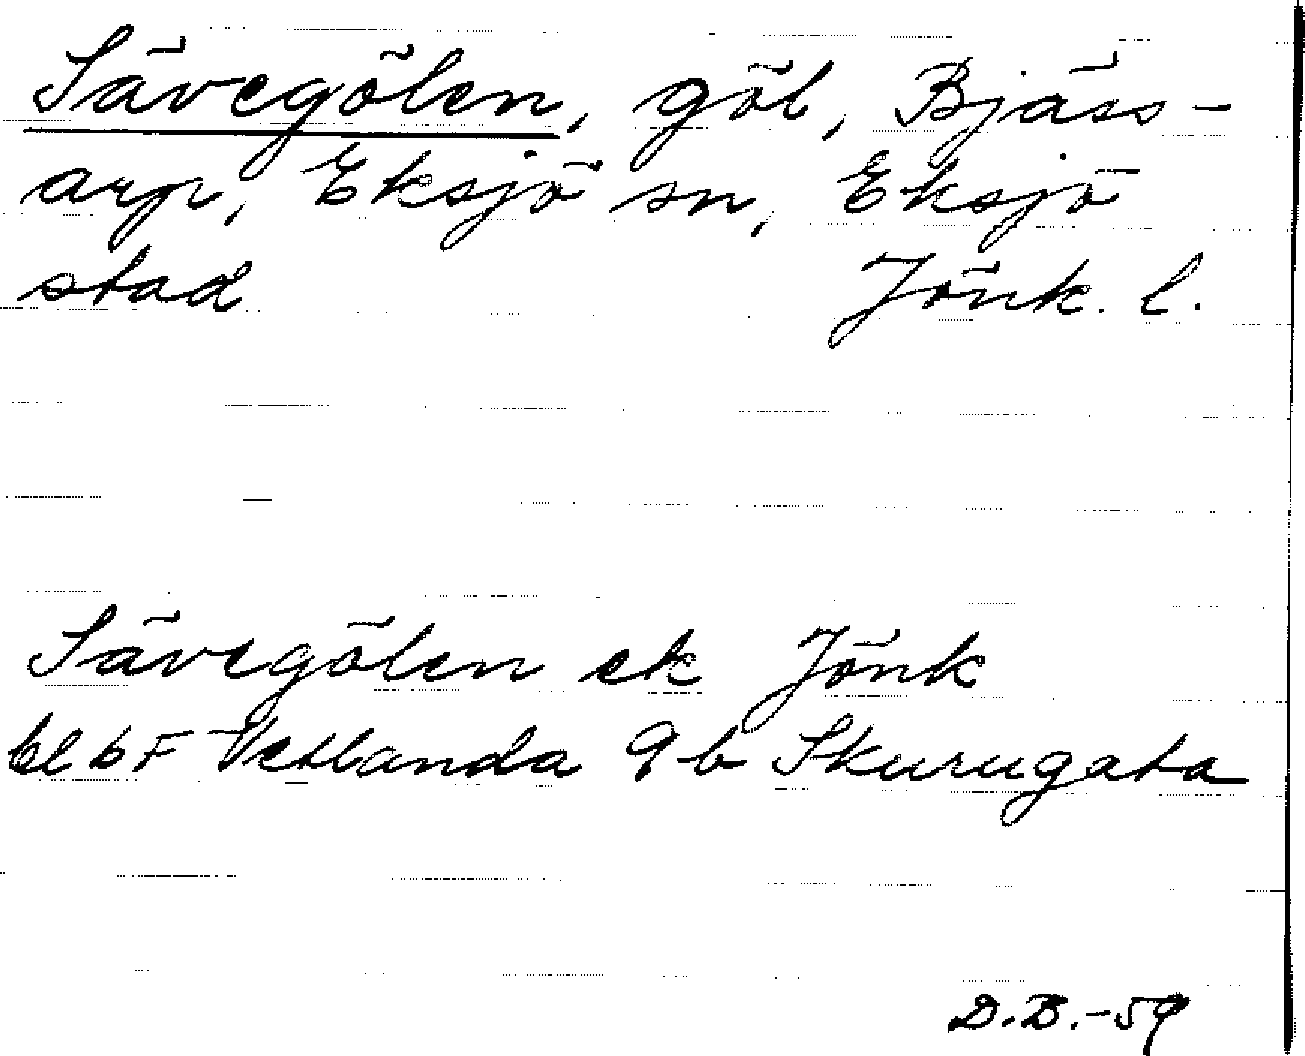 Sävegölen, göl, Bjäss-
arp, Eksjö sn, Eksjö
stad Jönk. l.
Sävegölen ek Jönk
bl 6F Vetlanda 9b Skurugata
D.B.-59